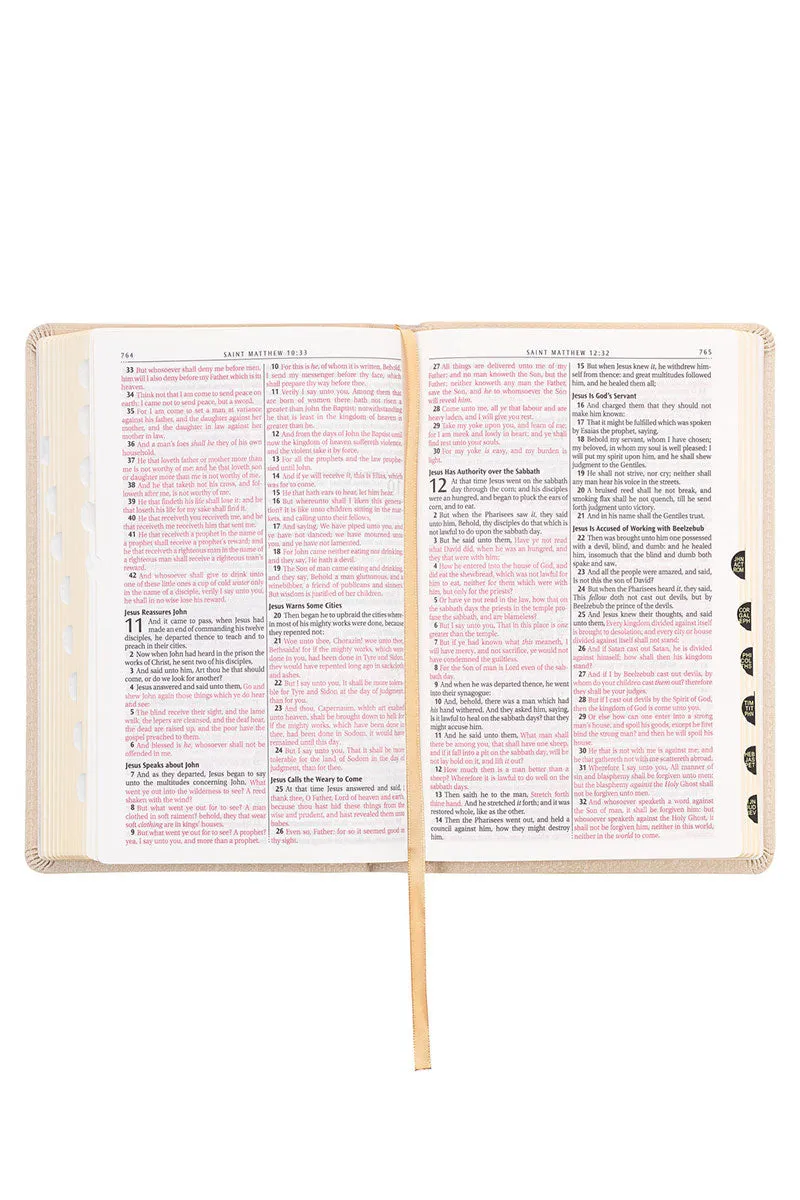 764
SAINT MATTHEW 10:33
33 But whosoever shall deny me before men,
him will I also deny before my Father which is in
heaven.
34 Think not that I am come to send peace on
earth: I came not to send peace, but a sword.
35 For I am come to set a man at variance
against his father, and the daughter against her
mother, and the daughter in law against her
mother in law.
36 And a man's foes shall be they of his own
household.
37 He that loveth father or mother more than
me is not worthy of me: and he that loveth son
or daughter more than me is not worthy of me.
38 And he that taketh not his cross, and fol-
loweth after me, is not worthy of me.
39 He that findeth his life shall lose it: and he
that loseth his life for my sake shall find it.
40 He that receiveth you receiveth me, and he
that receiveth me receiveth him that sent me.
41 He that receiveth a prophet in the name of
a prophet shall receive a prophet's reward; and
he that receiveth a righteous man in the name of
a righteous man shall receive a righteous man's
reward.
42 And whosoever shall give to drink unto
one of these little ones a cup of cold water only
in the name of a disciple, verily I say unto you,
he shall in no wise lose his reward.
Jesus Reassures John
11 And it came to pass, when Jesus had
made an end of commanding his twelve
disciples, he departed thence to teach and to
preach in their cities.
2 Now when John had heard in the prison the
works of Christ, he sent two of his disciples,
3 And said unto him, Art thou he that should
come, or do we look for another?
4 Jesus answered and said unto them, Go and
shew John again those things which ye do hear
and see:
5 The blind receive their sight, and the lame
walk, the lepers are cleansed, and the deaf hear,
the dead are raised up, and the poor have the
gospel preached to them.
6 And blessed is he, whosoever shall not be
offended in me.
Jesus Speaks about John
7 And as they departed, Jesus began to say
unto the multitudes concerning John, What
went ye out into the wilderness to see? A reed
shaken with the wind?
8 But what went ye out for to see? A man
clothed in soft raiment? behold, they that wear
soft clothing are in kings' houses.
9 But what went ye out for to see? A prophet?
yea, I say unto you, and more than a prophet.
10 For this is he, of whom it is written, Behold,
I send my messenger before thy face, which
shall prepare thy way before thee.
11 Verily I say unto you, Among them that
are born of women there hath not risen a
greater than John the Baptist: notwithstanding
he that is least in the kingdom of heaven is
greater than he.
12 And from the days of John the Baptist until
now the kingdom of heaven suffereth violence,
and the violent take it by force.
13 For all the prophets and the law prophe-
sied until John.
14 And if ye will receive it, this is Elias, which
was for to come.
15 He that hath ears to hear, let him hear.
16 But whereunto shall I liken this genera-
tion? It is like unto children sitting in the mar-
kets, and calling unto their fellows,
17 And saying, We have piped unto you, and
ye have not danced; we have mourned unto
you, and ye have not lamented.
18 For John came neither eating nor drinking,
and they say, He hath a devil.
19 The Son of man came eating and drinking,
and they say, Behold a man gluttonous, and a
winebibber, a friend of publicans and sinners.
But wisdom is justified of her children.
Jesus Warns Some Cities
20 Then began he to upbraid the cities where-
in most of his mighty works were done, because
they repented not:
21 Woe unto thee, Chorazin! woe unto thee,
Bethsaida! for if the mighty works, which were
done in you, had been done in Tyre and Sidon,
they would have repented long ago in sackcloth
and ashes.
22 But I say unto you, It shall be more toler-
able for Tyre and Sidon at the day of judgment,
than for you.
23 And thou, Capernaum, which art exalted
unto heaven, shalt be brought down to hell: for
if the mighty works, which have been done in
thee, had been done in Sodom, it would have
remained until this day.
24 But I say unto you, That it shall be more
tolerable for the land of Sodom in the day of
judgment, than for thee.
Jesus Calls the Weary to Come
25 At that time Jesus answered and said, I
thank thee, O Father, Lord of heaven and earth,
because thou hast hid these things from the
wise and prudent, and hast revealed them unto
babes.
26 Even so, Father: for so it seemed good in
thy sight.
SAINT MATTHEW 12:32
765
27 All things are delivered unto me of my
Father: and no man knoweth the Son, but the
Father; neither knoweth any man the Father,
save the Son, and he to whomsoever the Son
will reveal him.
28 Come unto me, all ye that labour and are
heavy laden, and I will give you rest.
29 Take my yoke upon you, and learn of me;
for I am meek and lowly in heart: and ye shall
find rest unto your souls.
30 For my yoke is easy, and my burden is
light.
Jesus Has Authority over the Sabbath
12 At that time Jesus went on the sabbath
day through the corn; and his disciples
were an hungred, and began to pluck the ears of
corn, and to eat.
2 But when the Pharisees saw it, they said
unto him, Behold, thy disciples do that which is
not lawful to do upon the sabbath day.
3 But he said unto them, Have ye not read
what David did, when he was an hungred, and
they that were with him;
4 How he entered into the house of God, and
did eat the shewbread, which was not lawful for
him to eat, neither for them which were with
him, but only for the priests?
5 Or have ye not read in the law, how that on
the sabbath days the priests in the temple pro-
fane the sabbath, and are blameless?
6 But I say unto you, That in this place is one
greater than the temple.
7 But if ye had known what this meaneth, I
will have mercy, and not sacrifice, ye would not
have condemned the guiltless.
8 For the Son of man is Lord even of the sab-
bath day.
9 And when he was departed thence, he went
into their synagogue:
10 And, behold, there was a man which had
his hand withered. And they asked him, saying,
Is it lawful to heal on the sabbath days? that they
might accuse him.
11 And he said unto them, What man shall
there be among you, that shall have one sheep,
and if it fall into a pit on the sabbath day, will he
not lay hold on it, and lift it out?
12 How much then is a man better than a
sheep? Wherefore it is lawful to do well on the
sabbath days.
13 Then saith he to the man, Stretch forth
thine hand. And he stretched it forth; and it was
restored whole, like as the other.
14 Then the Pharisees went out, and held a
council against him, how they might destroy
him.
15 But when Jesus knew it, he withdrew him-
self from thence: and great multitudes followed
him, and he healed them all;
Jesus Is God's Servant
16 And charged them that they should not
make him known:
17 That it might be fulfilled which was spoken
by Esaias the prophet, saying,
18 Behold my servant, whom I have chosen;
my beloved, in whom my soul is well pleased: I
will put my spirit upon him, and he shall shew
judgment to the Gentiles.
19 He shall not strive, nor cry; neither shall
any man hear his voice in the streets.
20 A bruised reed shall he not break, and
smoking flax shall he not quench, till he send
forth judgment unto victory.
21 And in his name shall the Gentiles trust.
Jesus Is Accused of Working with Beelzebub
22 Then was brought unto him one possessed
with a devil, blind, and dumb: and he healed
him, insomuch that the blind and dumb both
spake and saw.
23 And all the people were amazed, and said,
Is not this the son of David?
24 But when the Pharisees heard it, they said,
This fellow doth not cast out devils, but by
Beelzebub the prince of the devils.
25 And Jesus knew their thoughts, and said
unto them, Every kingdom divided against itself
is brought to desolation; and every city or house
divided against itself shall not stand:
26 And if Satan cast out Satan, he is divided
against himself; how shall then his kingdom
stand?
27 And if I by Beelzebub cast out devils, by
whom do your children cast them out? therefore
they shall be your judges.
28 But if I cast out devils by the Spirit of God,
then the kingdom of God is come unto you.
29 Or else how can one enter into a strong
man's house, and spoil his goods, except he first
bind the strong man? and then he will spoil his
house.
30 He that is not with me is against me; and
he that gathereth not with me scattereth abroad.
31 Wherefore I say unto you, All manner of
sin and blasphemy shall be forgiven unto men:
but the blasphemy against the Holy Ghost shall
not be forgiven unto men.
32 And whosoever speaketh a word against
the Son of man, it shall be forgiven him: but
whosoever speaketh against the Holy Ghost, it
shall not be forgiven him, neither in this world,
neither in the world to come.
JHN
ACT
ROM
COR
GAL
EPH
PHI
COL
THS
TIM
TIT
PHN
HEB
JAS
PET
JN
JUD
REV